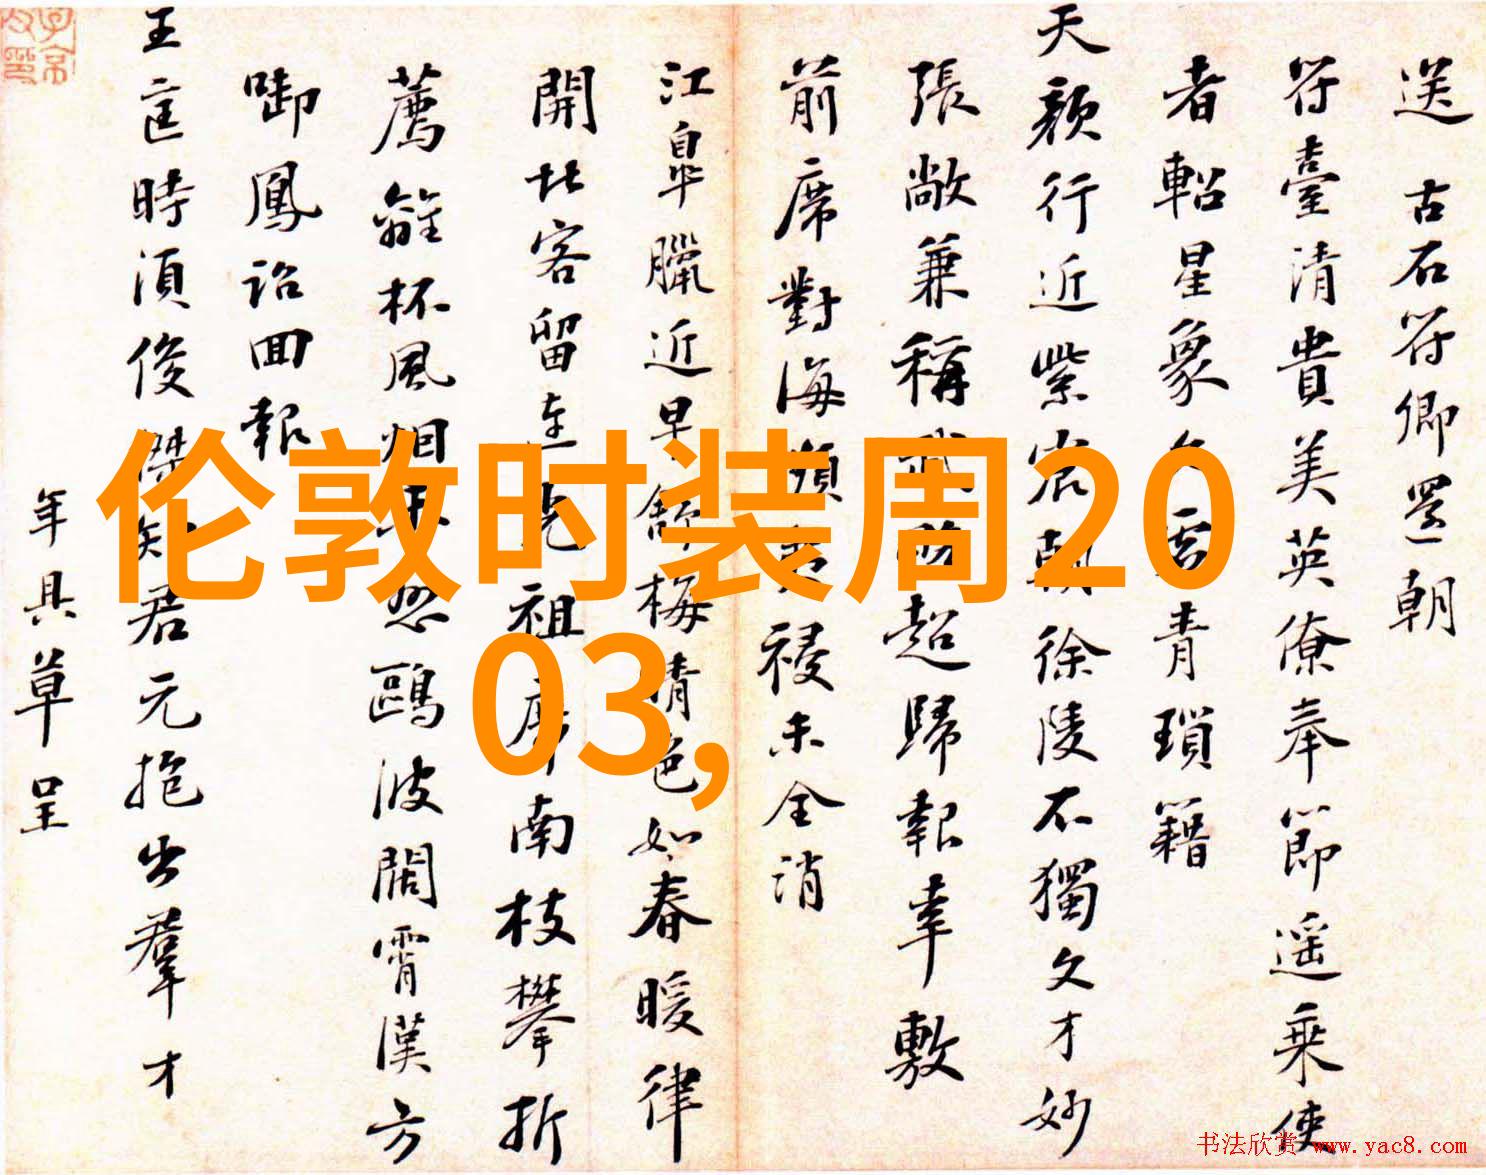 送古石符卿還朝
符臺清貴美英僚奉節遥乘使
者軺星象久雲青瑣籍
天顏行近紫宸朝徐陵不獨文才妙
張敞兼稱武超歸報幸敷
前席對海頻祲未全消
江皐臘近早舒梅晴色如春暖律
開北客留連光祖席南枝攀折
薦離杯風烟愁鷗波闊霄漢方
啣鳳詔回報
王 𨒪時須俊傑知君元抱出羣才
年具草呈
伦敦时装周20
03,
书法欣赏 www.yac8.com